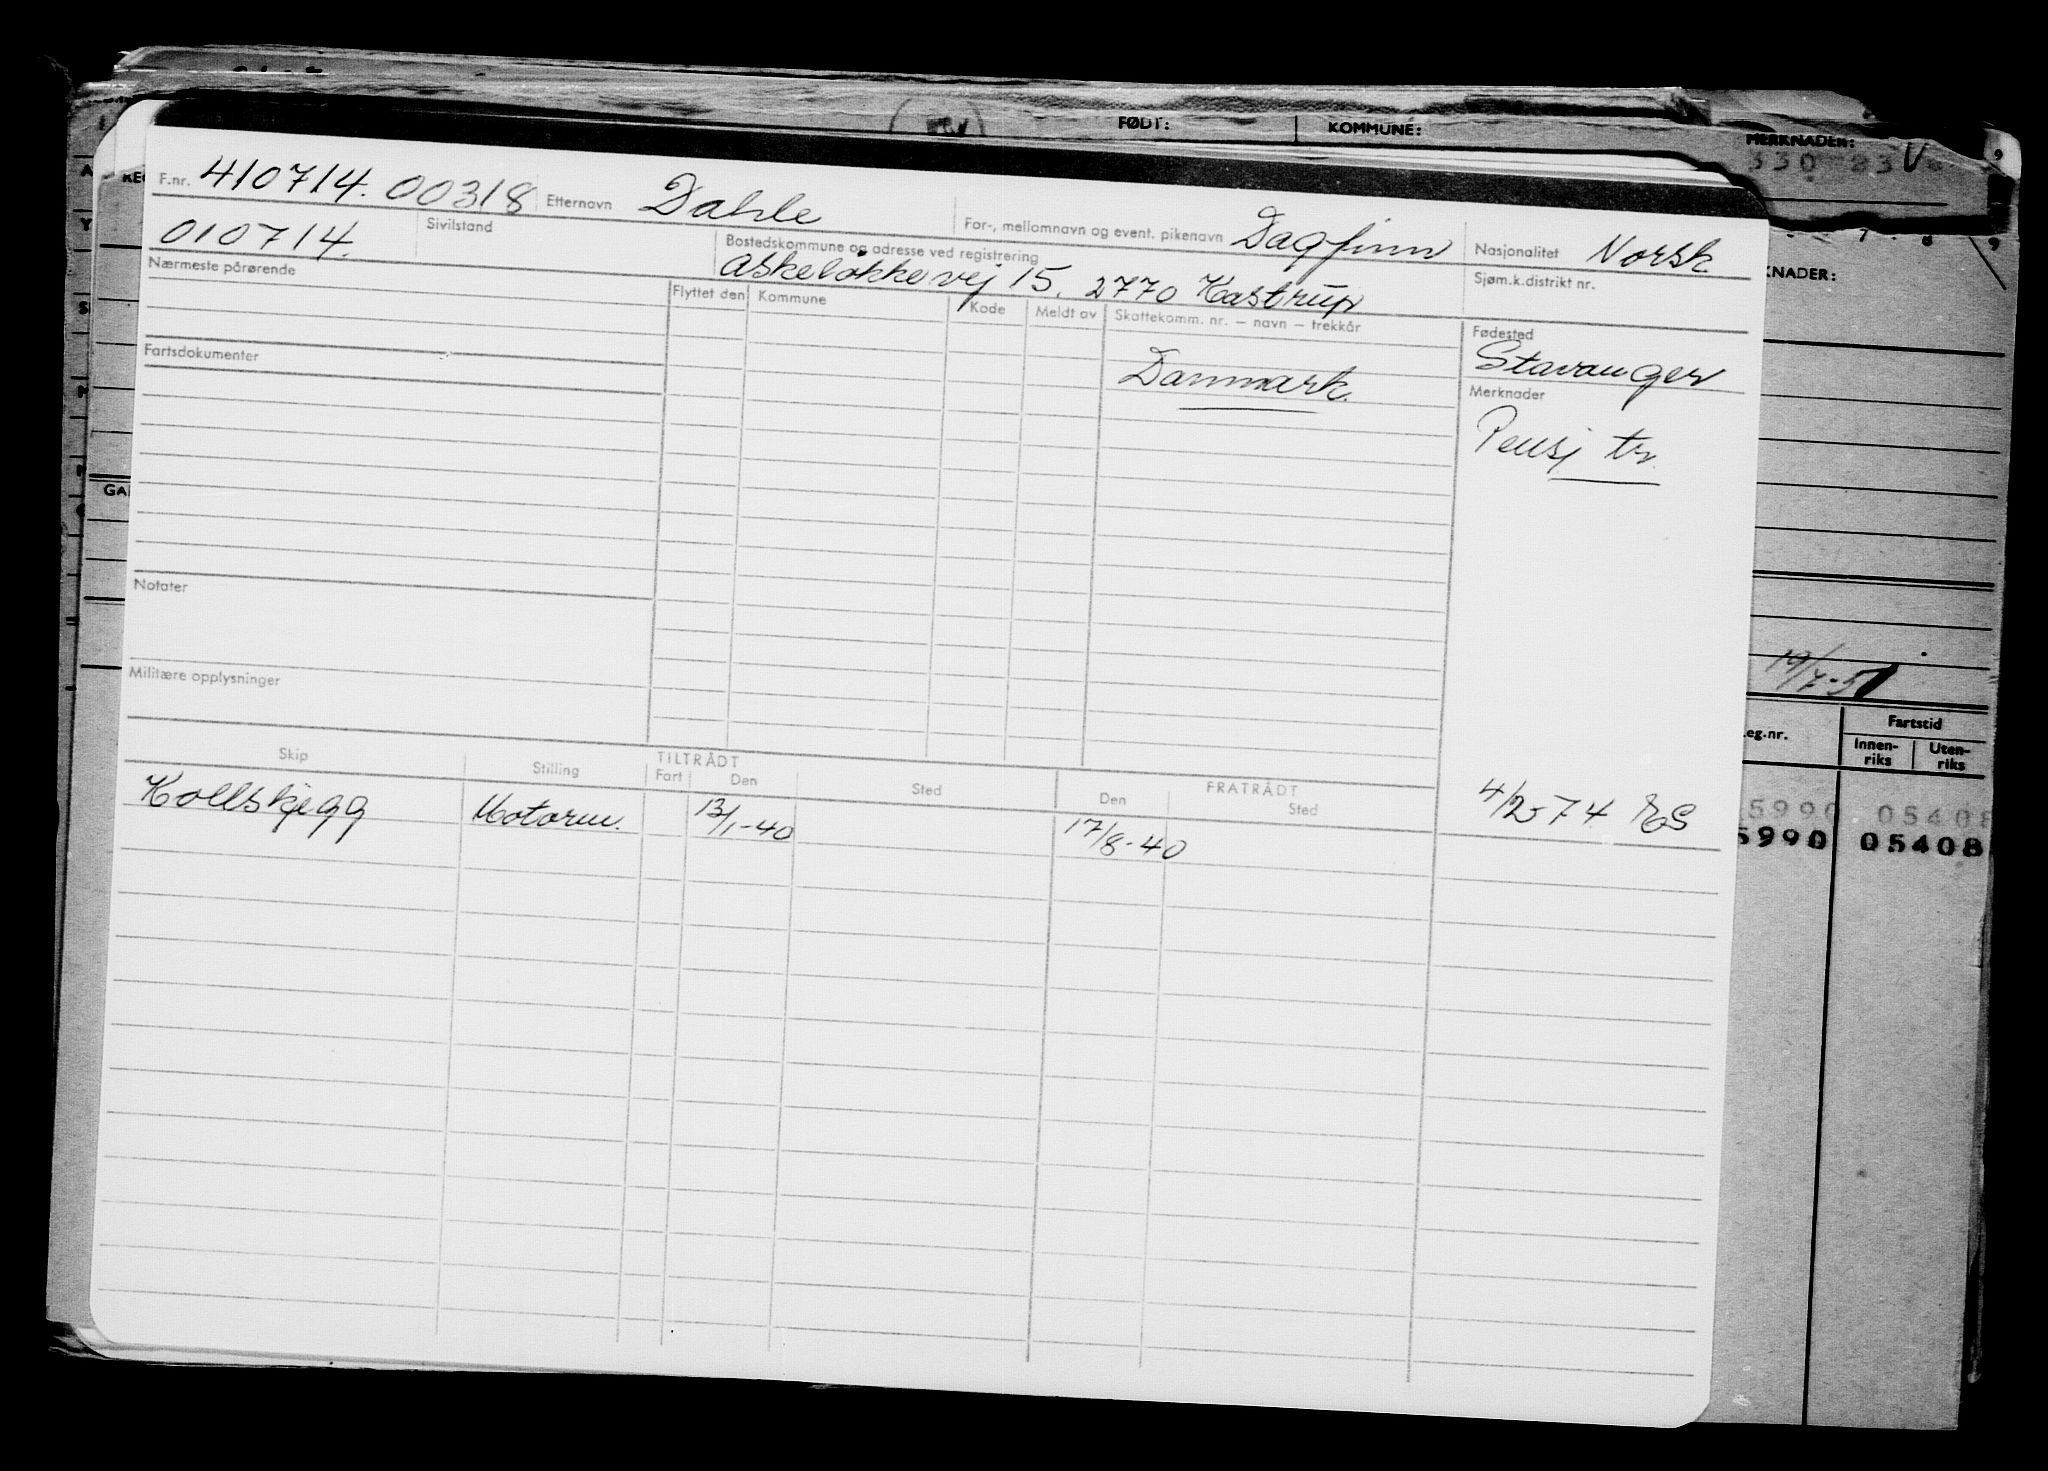 FØDT: KOMMUNE: MERKNADER:
F.nr. 410714.00318 Etternavn Dahle For-, mellomnavn og event. pikenavn Dagfinn Nasjonalitet Norsk
010714. Sivilstand Bostedskommune og adresse ved registrering Sjøm.k.distrikt nr.
Askeløkkevej 15. 2770 Kastrup
Nærmeste pårørende Flyttet den Kommune Kode Meldt av Skattekomm. nr. – navn – trekkår Fødested
Stavanger
Fartsdokumenter Danmark. Merknader
Pensj tr.
Notater
Militære opplysninger
19/7-51
Skip Stilling TILTRÅDT FRATRÅDT
Fart Den Sted Den Sted
Kollskjegg Motorm. 13/1-40 17/8-40 4/2-74
KNADER:
eg.nr. Fartstid
Innen-riks Uten-riks
5990 05408
5990 05408